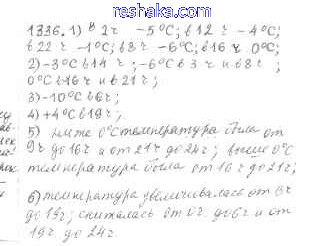 reshaka.com
1336. 1) в 2ч -5°С; в 12 ч -4°С;
в 22 ч -1°С; в 8ч -6°С; в 16 ч 0°С;
2) -3°С в 14 ч; -6°С в 3 ч и в 8ч;
0°С в 16ч и в 21ч;
3) -10°С в 6ч;
4) +4°С в 19ч;
5) ниже 0°С температура была от
9ч до 16ч и от 21ч до 24ч; выше 0°С
температура была от 16ч до 21ч;
6) температура увеличивалась от 6ч
до 19ч; снижалась от 0ч. до 6ч и от
19ч до 24ч.